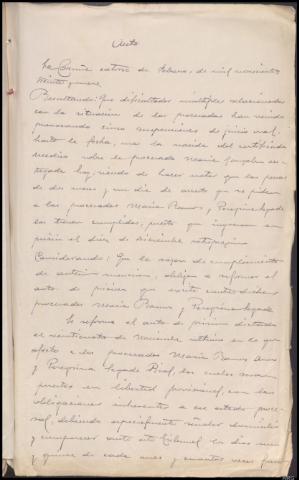 Auto
La Coruña catorce de febrero, de mil novecientos
treinta y nueve
Resultando: Que dificultades múltiples relacionadas
con la situación de los procesados han venido
provocando
hasta la fecha, una la del certificado
médico sobre la procesada María González
hoy; siendo de hacer notar que las penas
de dos meses y un día de arresto que se piden
a las procesadas María Ramos, y Peregrina Segade
las tienen cumplidas, puesto que ingresaron en
prisión el diez de diciembre
Considerando: Que la razón de cumplimiento
de mención, obliga a reformar el
auto de prisión que existe contra dichas
procesadas María Ramos y Peregrina Segade
Se reforma el auto de prisión dictado
el veinticuatro de noviembre último en lo que
afecta a las procesadas María Ramos
y Peregrina Segade las cuales seran
puestas en libertad provisional, con las
obligaciones inherentes a ese estado proce-
sal, debiendo especialmente señalar domicilio
y comparecer ante el Tribunal los días uno
y quince de cada mes y cuantas veces fueran